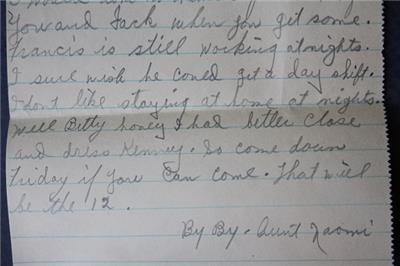 You and Jack when you get some.
Francis is still working at nights.
I sure wish he coued get a day shift.
I dont like staying at home at nights.
Well Betty honey I had better close
and dress Kenney. So come down
Friday if you can come. That will
be the 12.
By By. Aunt Naomi